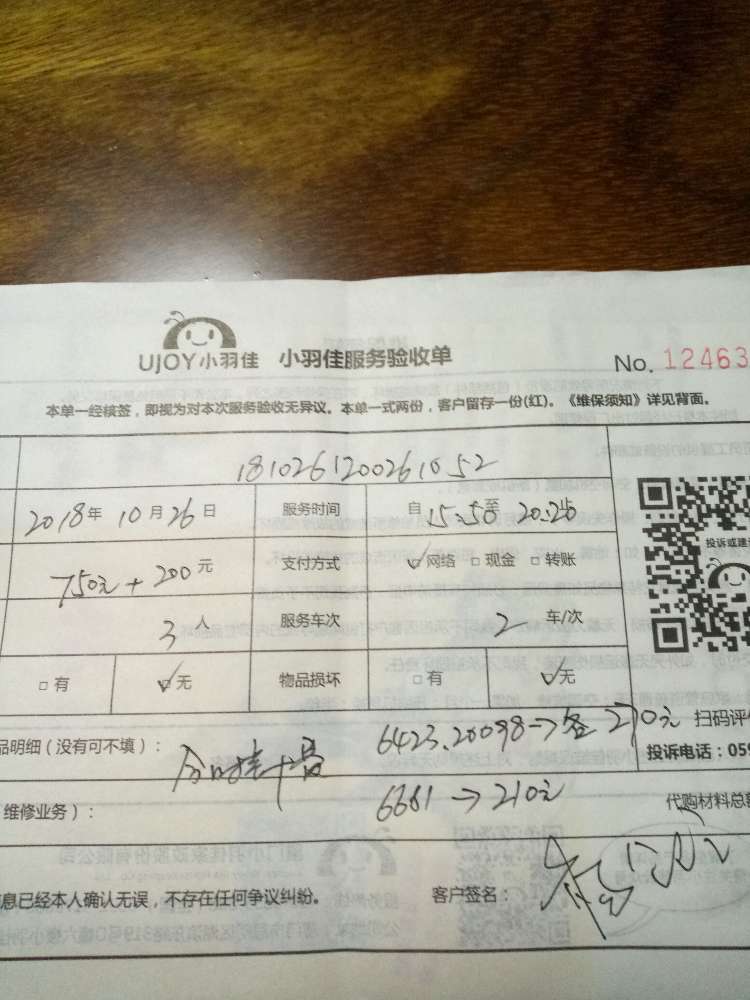 UJOY小羽佳 小羽佳服务验收单 No. 12463
本单一经核签，即视为对本次服务验收无异议。本单一式两份，客户留存一份(红)。《维保须知》详见背面。
1810261200261052
2018年 10月26日 服务时间 自 15:50 至 20:26止
投诉或建
750元+200元 支付方式 ☑网络 □现金 □转账
3人 服务车次 2 车/次
□有 ☑无 物品损坏 □有 ☑无
品明细（没有可不填）： 6423.20098→ 210元 扫码评价
投诉电话：059
维修业务）： 6681→210元 代购材料总额
息已经本人确认无误，不存在任何争议纠纷。 客户签名：